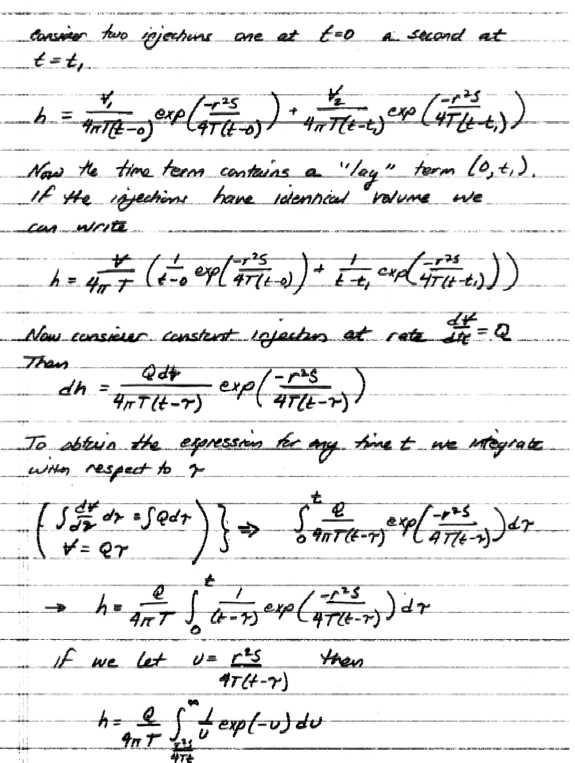 Consider two injections one at t=0 a second at
t = t₁
h = V̶₁/(4πT(t-0)) exp(-r²S/(4T(t-0))) + V̶₂/(4πT(t-t₁)) exp(-r²S/(4T(t-t₁)))
Now the time term contains a "lag" term (0,t₁).
If the injections have identical volume we
can write
h = V̶/(4πT) (1/(t-0) exp(-r²S/(4T(t-0))) + 1/(t-t₁) exp(-r²S/(4T(t-t₁))))
Now consider constant injection at rate dV̶/dt = Q
Then
dh = Qdt/(4πT(t-τ)) exp(-r²S/(4T(t-τ)))
To obtain the expression for any time t we integrate
with respect to τ
(∫ dV̶/dτ dτ = ∫Qdτ
V̶ = Qτ) } ⇒ ∫₀ᵗ Q/(4πT(t-τ)) exp(-r²S/(4T(t-τ))) dτ
→ h = Q/(4πT) ∫₀ᵗ 1/(t-τ) exp(-r²S/(4T(t-τ))) dτ
if we let u = r²S/(4T(t-τ)) then
h = Q/(4πT) ∫_{r²S/(4Tt)}^∞ 1/u exp(-u) du